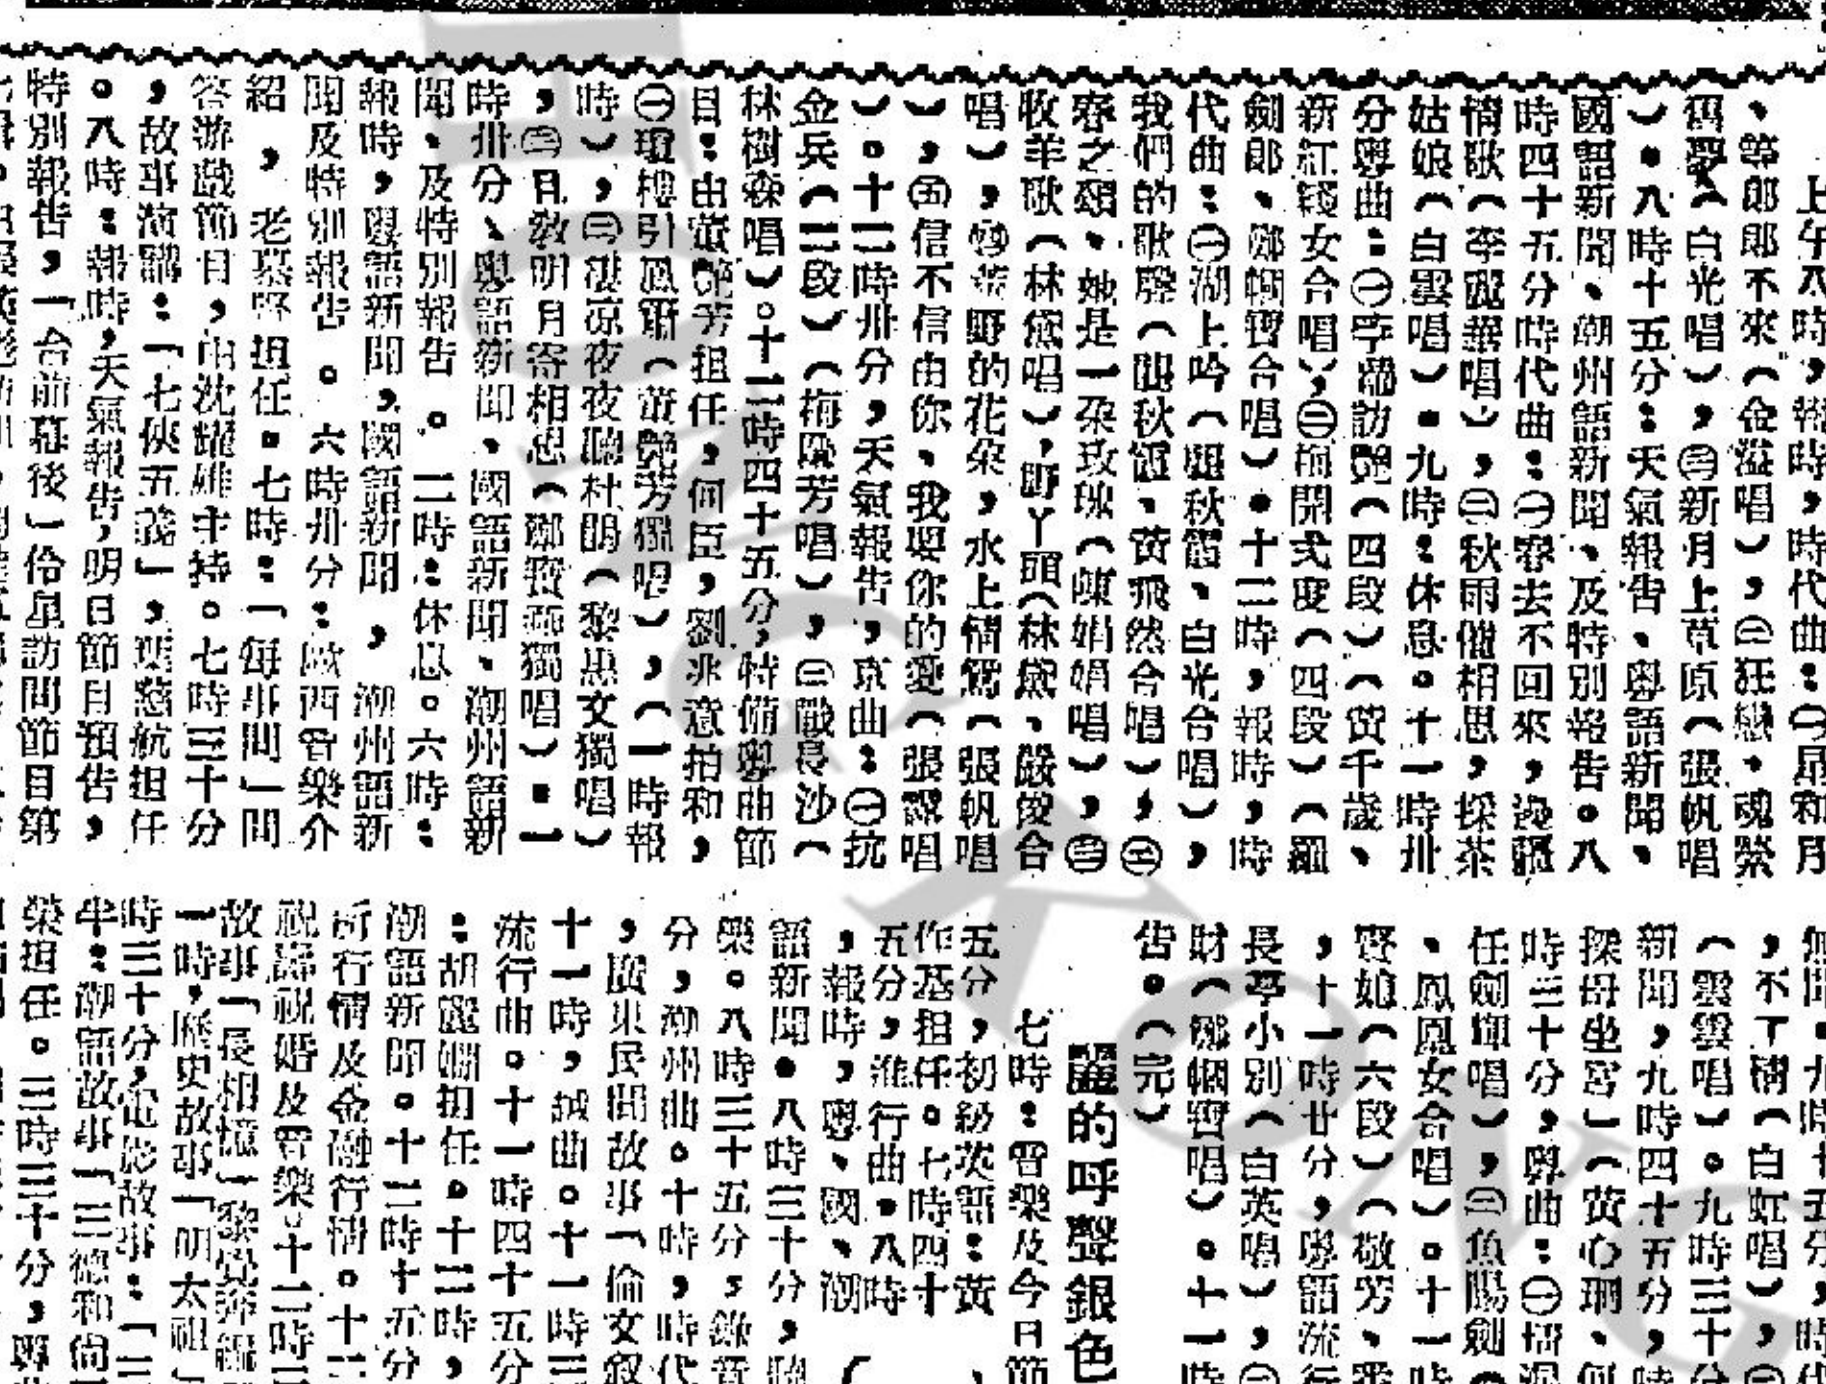 上午八時，報時，時代曲：㊀星和月
、等郎郎不來（金溢唱），㊁狂戀、魂縈
舊夢（白光唱），㊂新月上草原（張帆唱
）。八時十五分：天氣報告、粵語新聞、
國語新聞、潮州語新聞、及特別報告。八
時四十五分時代曲：㊀春去不回來，
情歌（李麗華唱），㊁秋雨催相思，採茶
姑娘（白雲唱）。九時：休息。十一時卅
分粵曲：㊀訪艷（四段）（黃千歲、
新紅綫女合唱），㊁梅開弍度（四段）（羅
劍郎、鄭幗寶合唱）。十二時，報時，時
代曲：㊀湖上吟（龔秋霞、白光合唱），
我們的歌聲（龔秋霞、黃飛然合唱），㊁
春之頌、她是一朶玫瑰（陳娟娟唱），㊂
收羊歌（林黛唱），野丫頭（林黛、嚴俊合
唱），㊃野的花朶，水上情鴛（張帆唱
），㊄信不信由你、我要你的愛（張露唱
）。十二時卅分，天氣報告，京曲：㊀抗
金兵（二段）（梅蘭芳唱），㊁戰長沙（
林樹森唱）。十二時四十五分，特備粵曲節
目：由黃艷芳担任，何臣，劉兆意拍和，
㊀瓊樓引鳳簫（黃艷芳獨唱），（一時報
時），㊁淒涼夜夜聽杜鵑（黎惠文獨唱）
，㊂月敎明月寄相思（鄭寶獨唱）。一
時卅分、粵語新聞、國語新聞、潮州語新
聞、及特別報告。二時：休息。六時：
報時，粵語新聞，國語新聞，潮州語新
聞及特別報告。六時卅分：歐西音樂介
紹，老慕野担任。七時：「每事問」問
答游戲節目，由沈耀雄主持。七時三十分
，故事演講：「七俠五義」，葉慈航担任
。八時：報時，天氣報告，明日節目預告，
特別報告，「台前幕後」伶星訪問節目第
無間。九時十五分，時代
，不了情（白虹唱），㊁
（雲雲唱）。九時三十分
新聞，九時四十五分，時
探母坐宮」（黃心珊、何
時三十分，粵曲：㊀
任劍輝唱），㊁魚腸劍
、鳳凰女合唱）。十一時
賢娘（六段）（敬芳、
，十一時廿分，粵語流行
長亭小別（白英唱），㊁
財（鄭幗寶唱）。十一時
告。（完）
麗的呼聲銀色
七時：音樂及今日節
五分，初級英語：黃
作基担任。七時四十
五分，進行曲。八時
，報時，粵、國、潮
語新聞。八時三十分，
樂。八時三十五分，錄音
分，潮州曲。十時，時代
，廣東民間故事「倫文叙
十一時，曲。十一時三
流行曲。十一時四十五分
：胡麗嫻担任。十二時，
潮語新聞。十二時十五分
所行情及金融行情。十二
祝壽祝婚及音樂。十二時三
故事「長相憶」黎覺奔編
一時，歷史故事「明太祖」
時三十分，電影故事：「二
半：潮語故事「三德和尙
榮担任。三時三十分，粵
HONG KONG